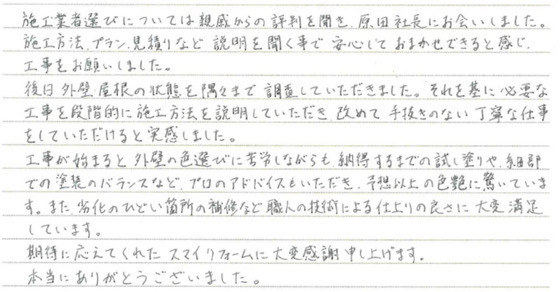 施工業者選びについては親戚からの評判を聞き、原田社長にお会いしました。
施工方法、プラン、見積りなど 説明を聞く事で 安心して おまかせできると感じ、
工事をお願いしました。
後日 外壁、屋根の状態を隅々まで 調査していただきました。それを基に 必要な
工事を段階的に 施工方法を説明していただき、改めて 手抜きのない 丁寧な仕事
をしていただけると 実感しました。
工事が始まると 外壁の色選びに苦労しながらも、納得するまでの試し塗りや、細部
での塗装のバランスなど、プロのアドバイスもいただき、予想以上の色艶に驚いていま
す。また、劣化のひどい箇所の補修など 職人の技術による仕上りの良さに 大変 満足
しています。
期待に 応えてくれた スマイリフォームに 大変感謝 申し上げます。
本当に ありがとうございました。